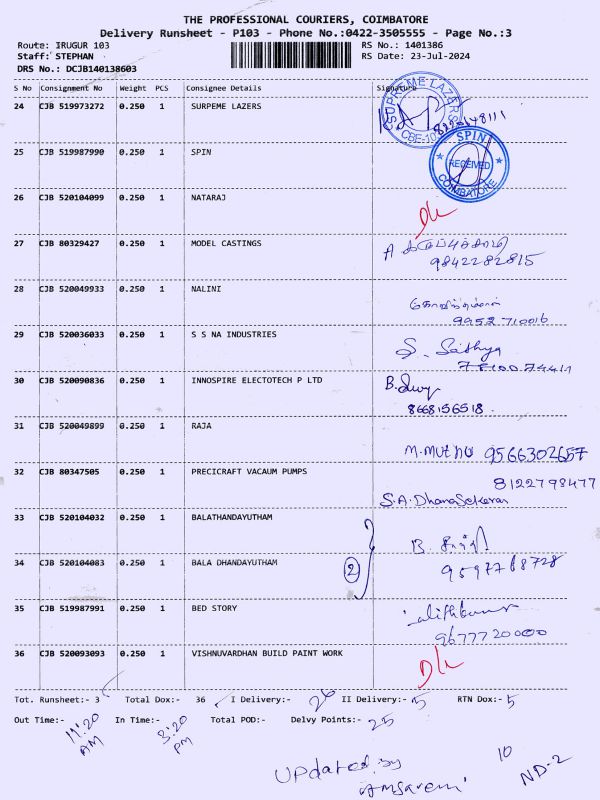 THE PROFESSIONAL COURIERS, COIMBATORE
Delivery Runsheet - P103 - Phone No.:0422-3505555 - Page No.:3
Route: IRUGUR 103 RS No.: 1401386
Staff: STEPHAN RS Date: 23-Jul-2024
DRS No.: DCJB140138603
S No Consignment No Weight PCS Consignee Details Signature
24 CJB 519973272 0.250 1 SURPEME LAZERS
SUPREME LAZERS
CBE-10
25 CJB 519987990 0.250 1 SPIN
SPIN
RECEIVED
COIMBATORE
26 CJB 520104099 0.250 1 NATARAJ
27 CJB 80329427 0.250 1 MODEL CASTINGS
9842282815
28 CJB 520049933 0.250 1 NALINI
9952710016
29 CJB 520036033 0.250 1 S S NA INDUSTRIES
S. Sathya
30 CJB 520090836 0.250 1 INNOSPIRE ELECTOTECH P LTD
8668156518.
31 CJB 520049899 0.250 1 RAJA
M.MUTHU 9566302657
32 CJB 80347505 0.250 1 PRECICRAFT VACAUM PUMPS 8122793477
S.A.DhanaSekaran
33 CJB 520104032 0.250 1 BALATHANDAYUTHAM
34 CJB 520104083 0.250 1 BALA DHANDAYUTHAM 2
35 CJB 519987991 0.250 1 BED STORY
9677720000
36 CJB 520093093 0.250 1 VISHNUVARDHAN BUILD PAINT WORK
D/L
Tot. Runsheet:- 3 Total Dox:- 36 I Delivery:- 26 II Delivery:- 5 RTN Dox:- 5
Out Time:- 11:20 AM In Time:- 3:20 PM Total POD:- Delvy Points:- 25
Updated by 10 ND-2